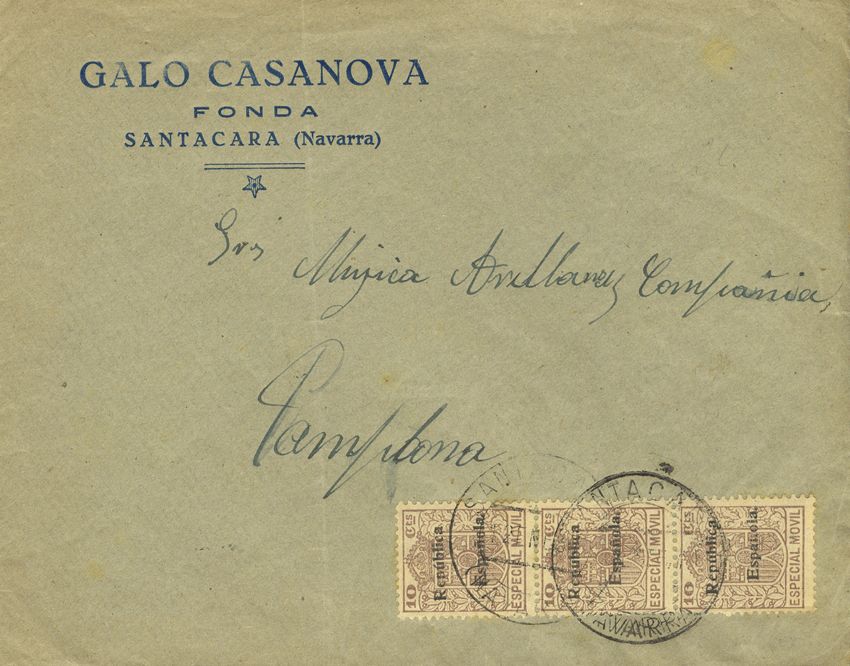 GALO CASANOVA
FONDA
SANTACARA (Navarra)
Srs Mugica Arellano y Compañia,
Pamplona
SANTA
SANTACA
NAVARRA
10 Cts República Española. ESPECIAL MOVIL
10 Cts República Española. ESPECIAL MOVIL
10 Cts República Española. ESPECIAL MOVIL